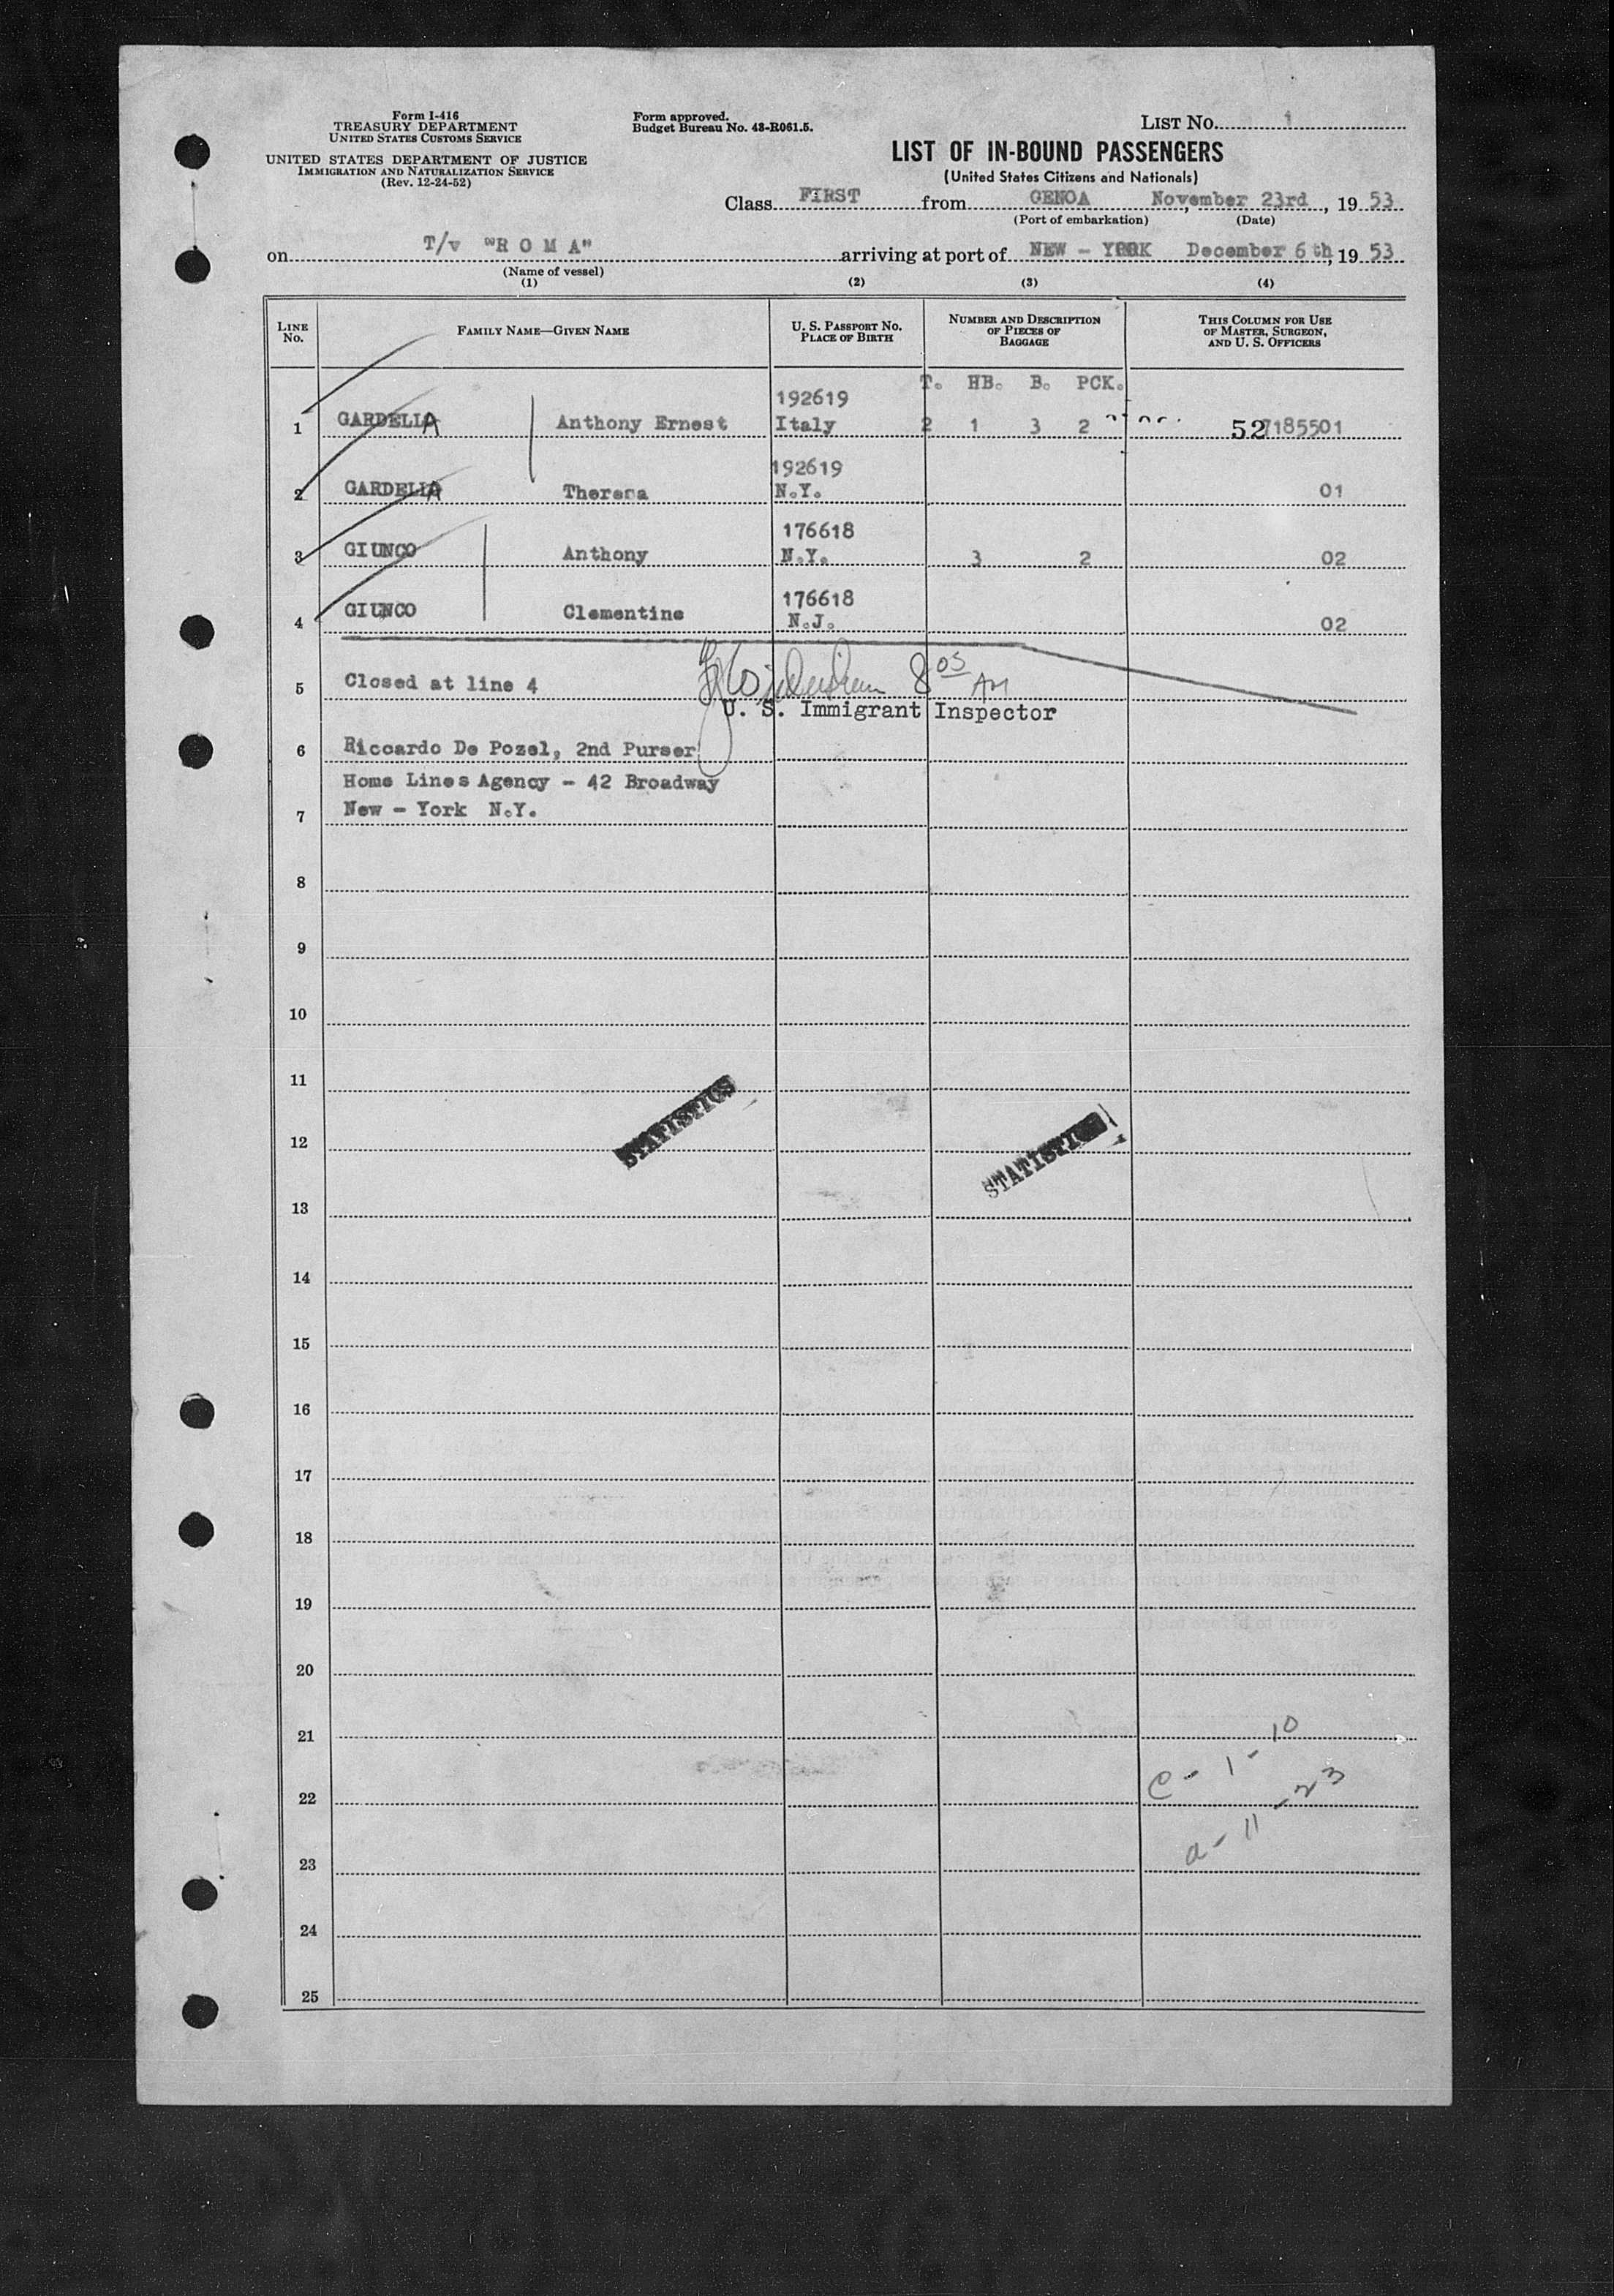 Form I-416
TREASURY DEPARTMENT
UNITED STATES CUSTOMS SERVICE
UNITED STATES DEPARTMENT OF JUSTICE
IMMIGRATION AND NATURALIZATION SERVICE
(Rev. 12-24-52)
Form approved.
Budget Bureau No. 43-R061.5.
LIST NO. 1
LIST OF IN-BOUND PASSENGERS
(United States Citizens and Nationals)
Class FIRST from GENOA November 23rd, 1953
(Port of embarkation) (Date)
on T/v "R O M A" arriving at port of NEW - YORK December 6th, 1953
(Name of vessel)
(1) (2) (3) (4)
LINE NO. FAMILY NAME—GIVEN NAME U. S. PASSPORT NO. PLACE OF BIRTH NUMBER AND DESCRIPTION OF PIECES OF BAGGAGE THIS COLUMN FOR USE OF MASTER, SURGEON, AND U. S. OFFICERS
T. HB. B. PCK.
192619
1 GARDELLA Anthony Ernest Italy 2 1 3 2 527185501
192619
2 GARDELLA Theresa N.Y. 01
176618
3 GIUNCO Anthony N.Y. 3 2 02
176618
4 GIUNCO Clementine N.J. 02
5 Closed at line 4 8 05 AM
U. S. Immigrant Inspector
6 Riccardo De Pozel, 2nd Purser
Home Lines Agency - 42 Broadway
7 New - York N.Y.
8
9
10
11
STATISTICS
12
STATISTICS
13
14
15
16
17
18
19
20
21
C - 1 - 10
22
a - 11 - 23
23
24
25